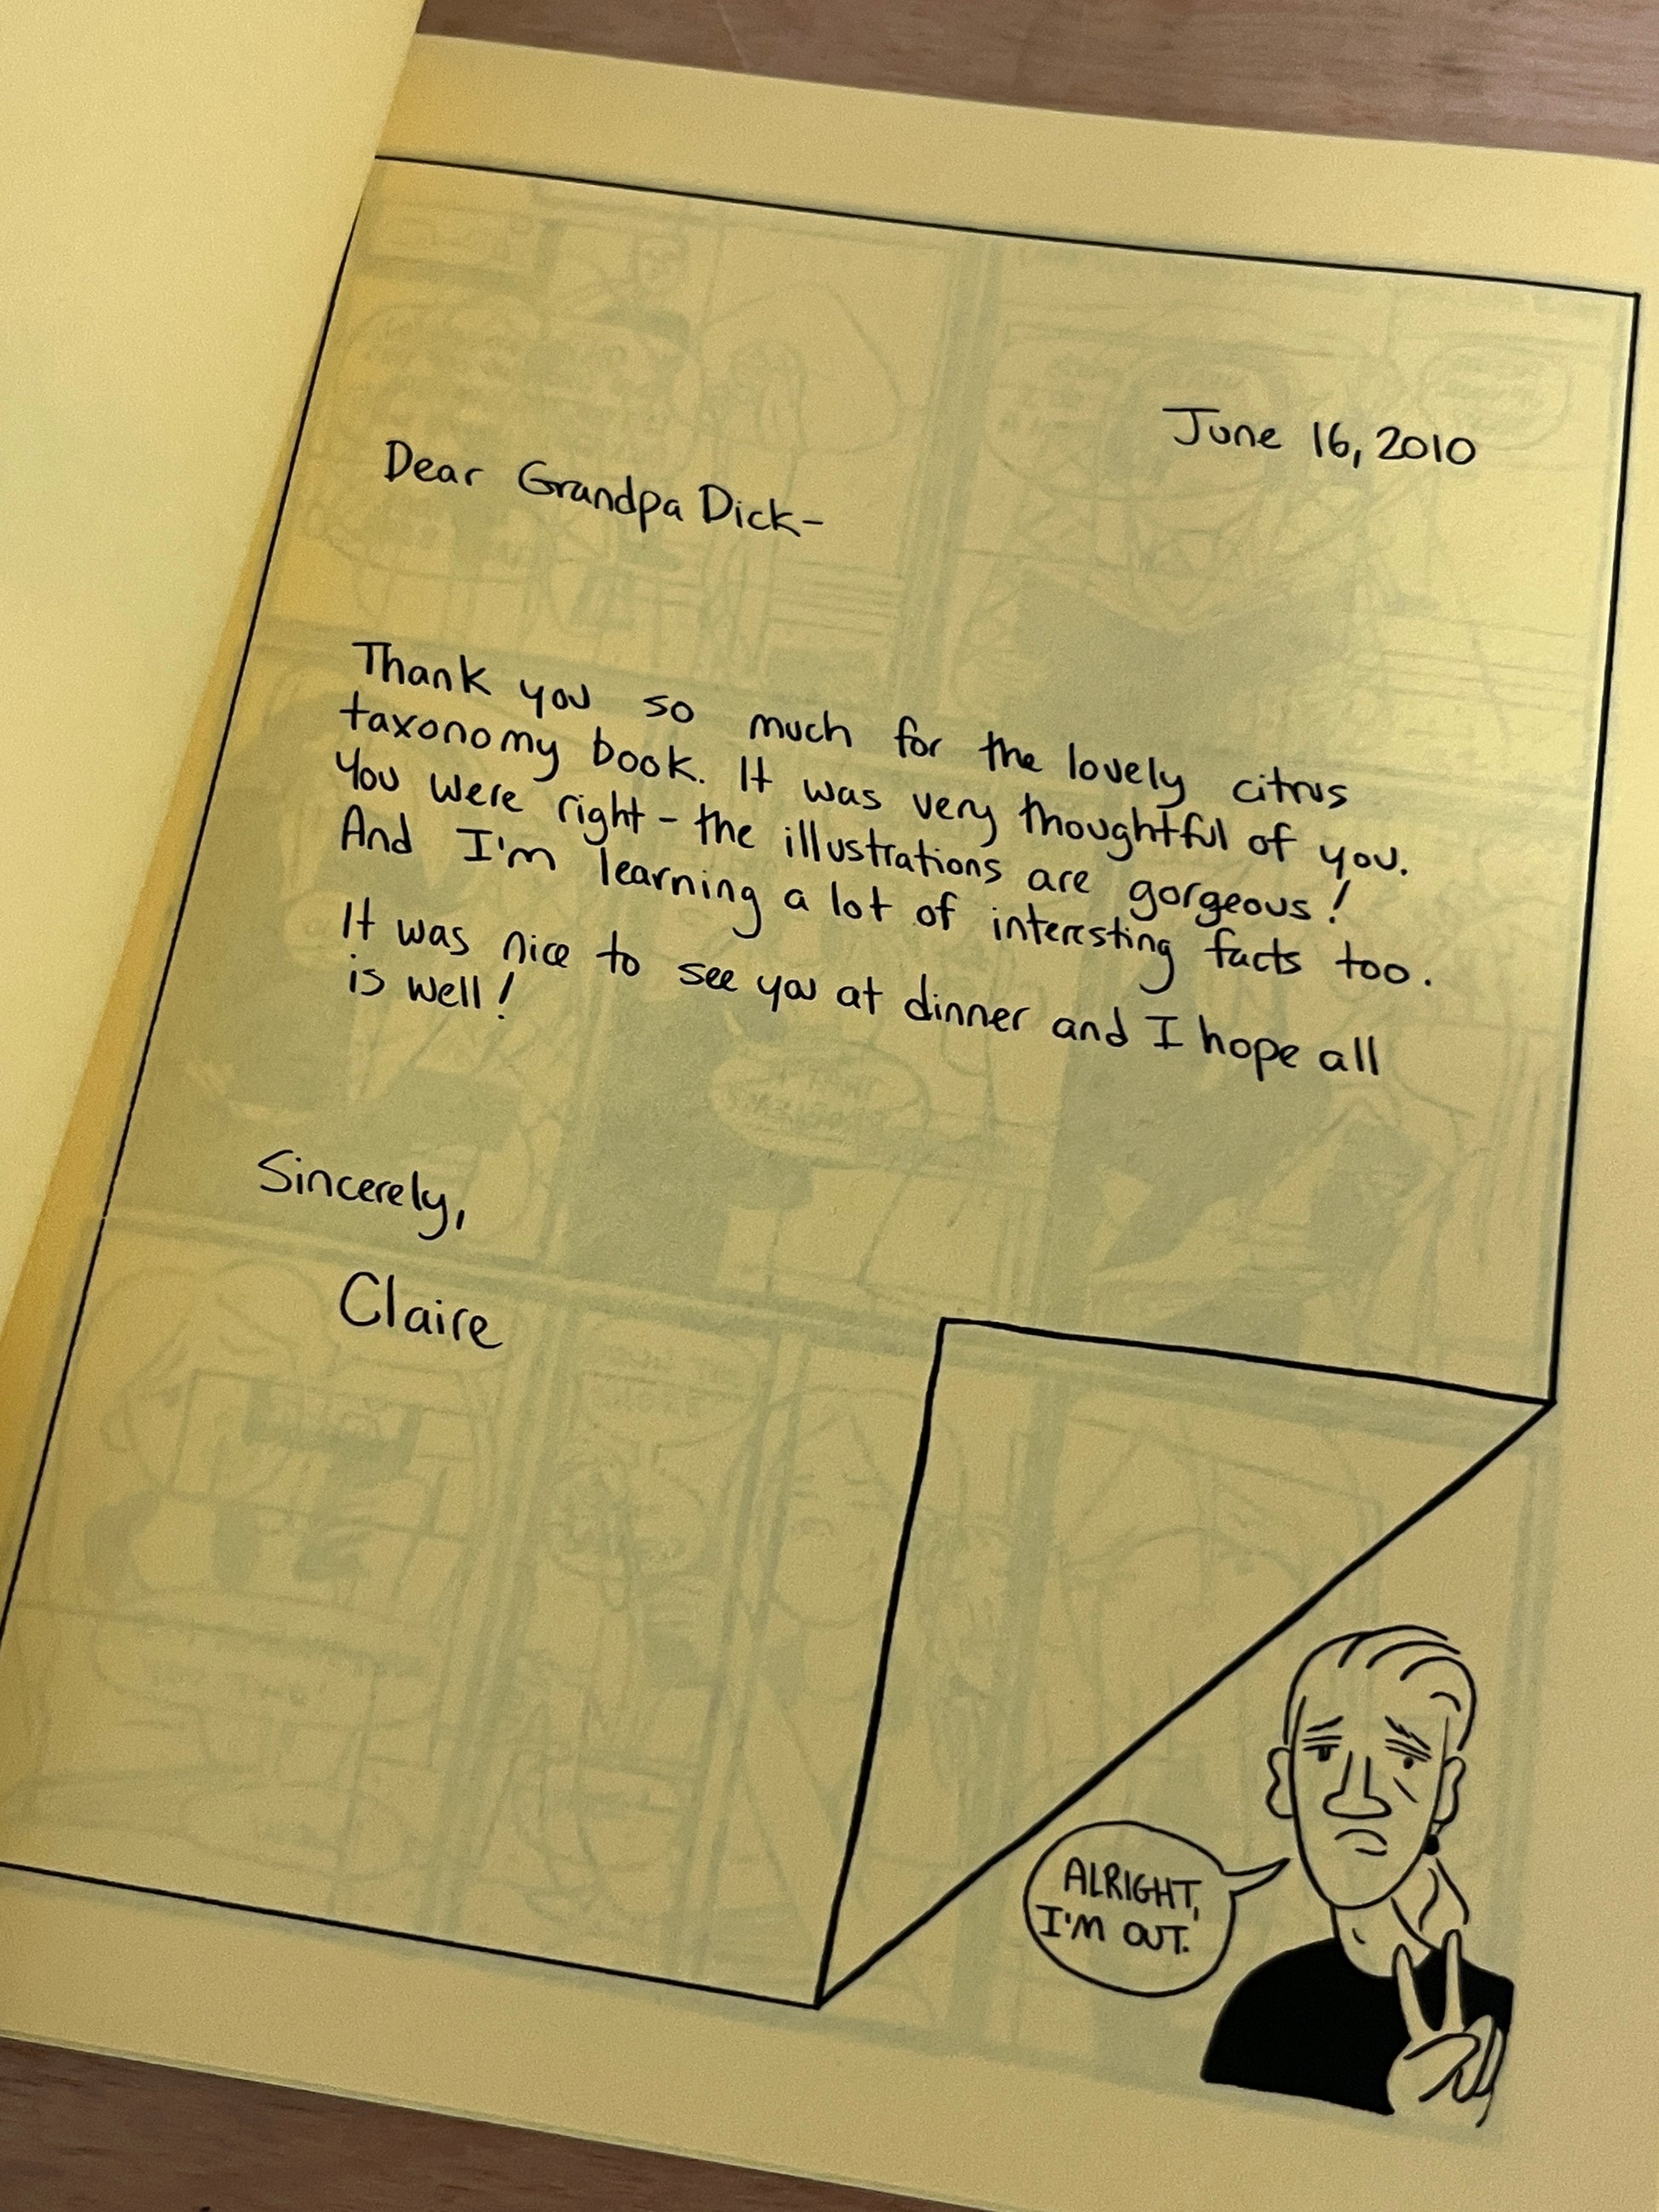 June 16, 2010
Dear Grandpa Dick-
Thank you so much for the lovely citrus
taxonomy book. It was very thoughtful of you.
You were right - the illustrations are gorgeous!
And I'm learning a lot of interesting facts too.
It was nice to see you at dinner and I hope all
is well!
Sincerely,
Claire
ALRIGHT,
I'M OUT.